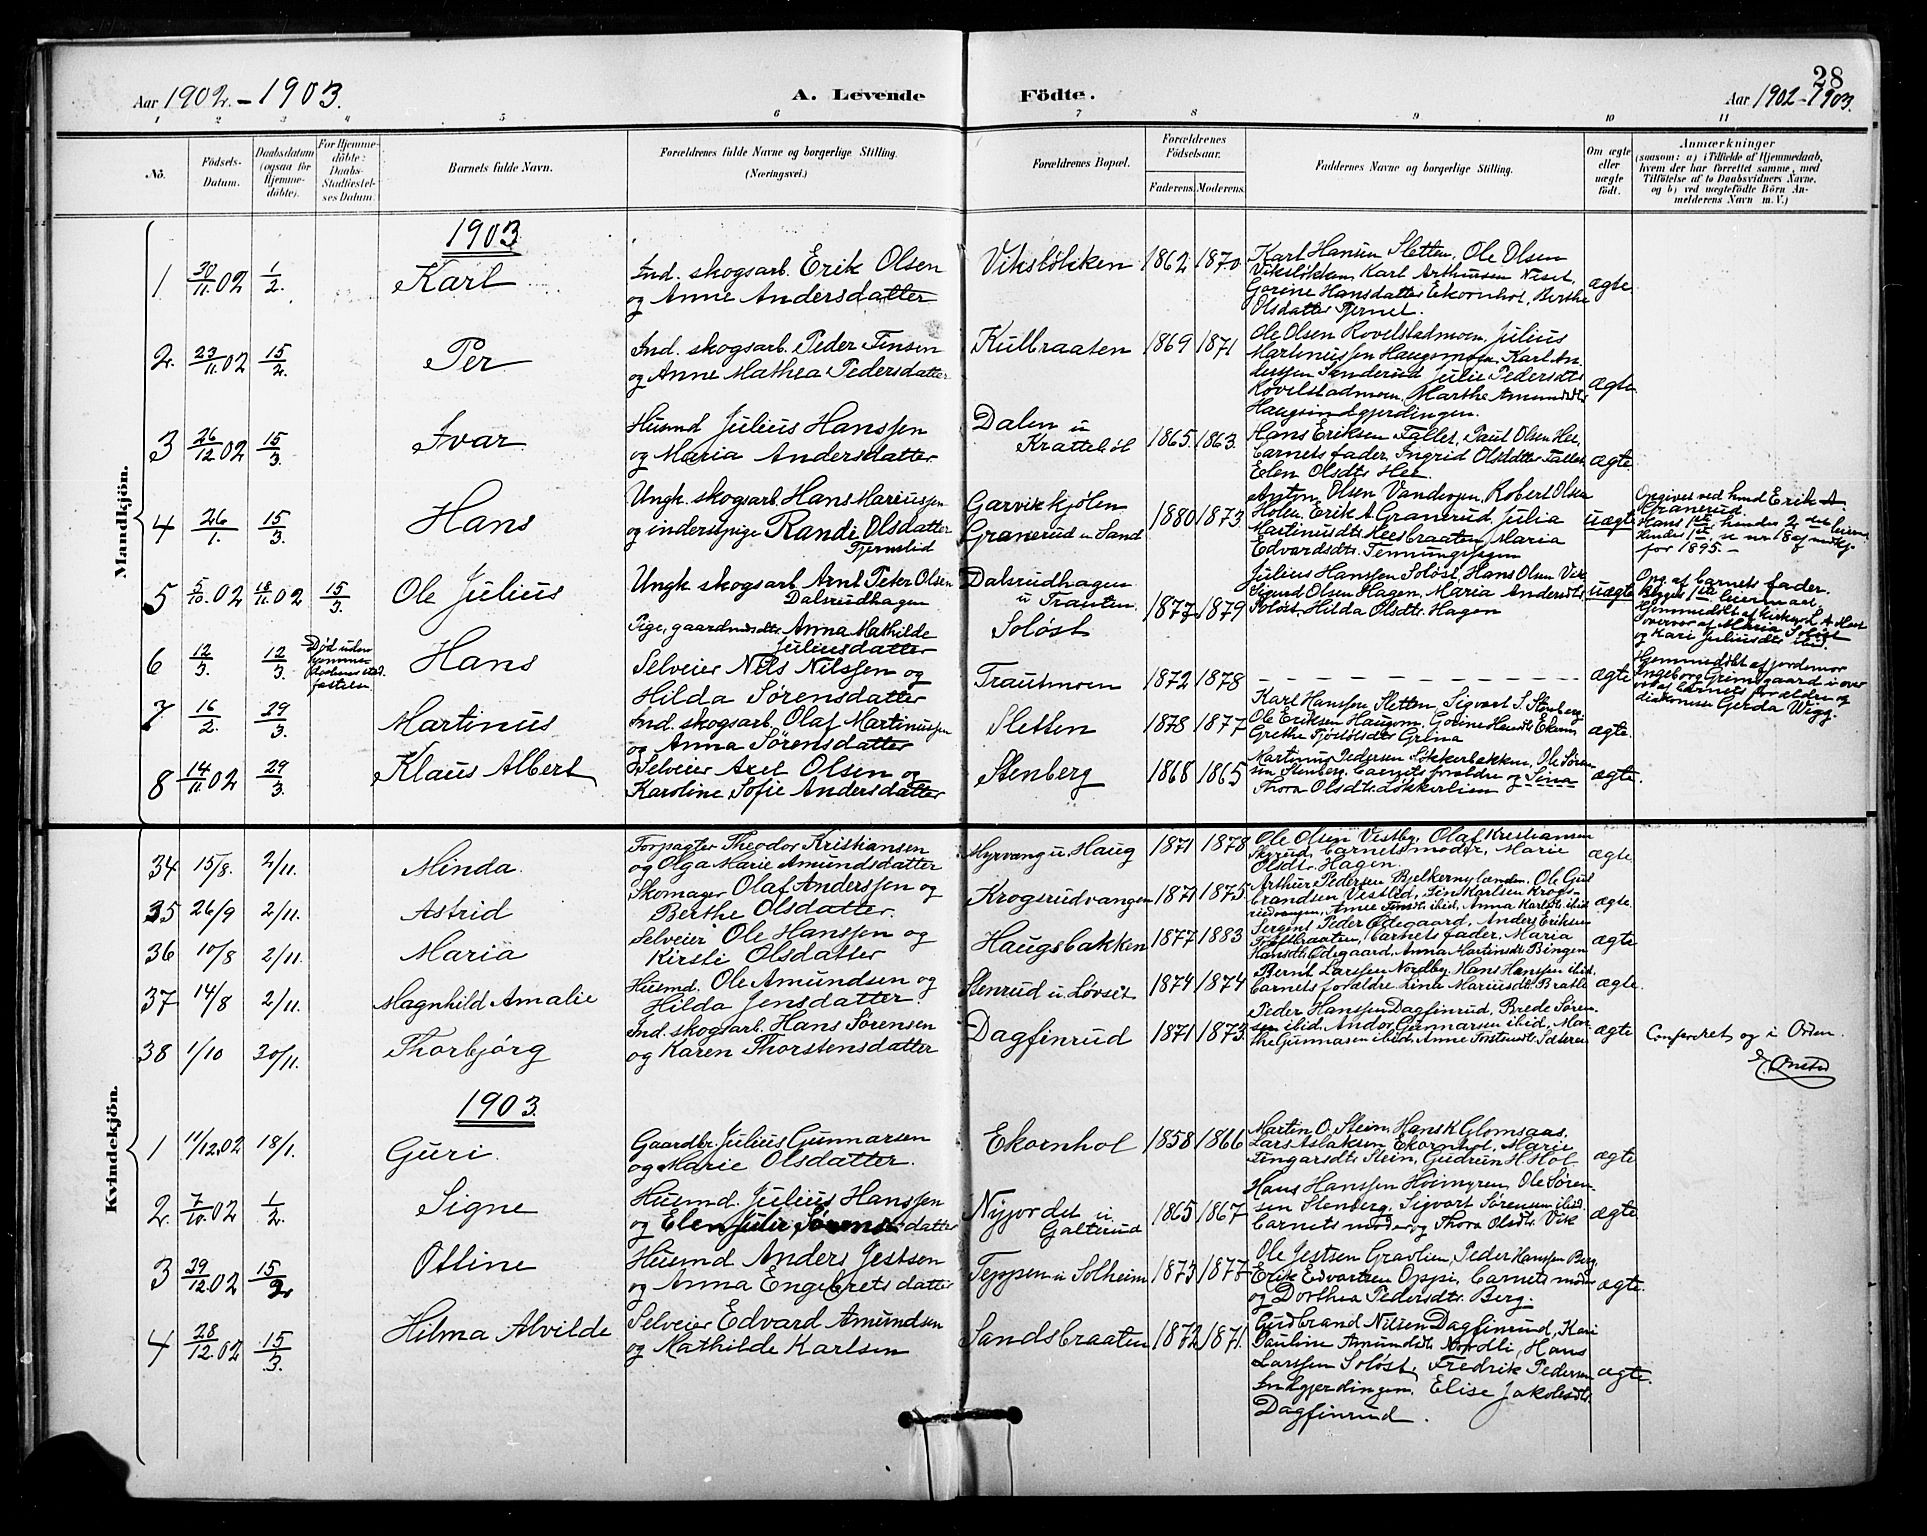 28
Aar 1902 - 1903.
A. Levende Födte.
Aar 1902 - 1903.
1 2 3 4 5 6 7 8 9 10 11
No.
Födsels-Datum.
Daabsdatum (ogsaa for Hjemmedöbte).
For Hjemmedöbte: Daabs-Stadfæstelses Datum.
Barnets fulde Navn.
Forældrenes fulde Navne og borgerlige Stilling. (Næringsvei.)
Forældrenes Bopæl.
Forældrenes Födselsaar.
Faderens.
Moderens.
Faddernes Navne og borgerlige Stilling.
Om ægte eller uægte födt.
Anmærkninger
(saasom: a) i Tilfælde af Hjemmedaab,
hvem der har forrettet samme, med
Tilföielse af to Daabsvidners Navne,
og b) ved uægtefödte Börn An-
melderens Navn m. V.)
Mandkjön.
1903
1 30/11 02 1/2. Karl
Ind. skogsarb. Erik Olsen
og Anne Andersdatter
Viksløkken 1862 1870
Karl Hansen Sletten, Ole Olsen
Viksløkken, Karl Arthursen Neset,
Gorine Hansdatter Ekornhol, Berthe
Olsdatter
ægte.
2. 23/11 02 15/2. Per
Ind. skogsarb. Peder Finsen
og Anne Mathea Pedersdatter
Kulbraaten 1869 1871
Ole Olsen Rovelstadmoen, Julius
Martinussen Haugsmoen, Karl An
derssen Sanderud Julie Pedersdt.
Rovelstadmoen, Marthe Amundsdt.
Haugsindgjerdingen.
ægte
3 26/12 02 15/3. Ivar
Husmd Julius Hanssen
og Maria Andersdatter
Dalen u
Kratteböl 1865. 1863.
Hans Eriksen Fallet, Paul Olsen Hee,
barnets fader, Ingrid Olsdatter Fallet,
Elen Olsdt. Hee
ægte
4 26/1. 15/3. Hans
Ungk. skogsarb. Hans Mariussen
og inderstpige Randi Olsdatter
Tjernslid
Garvikkjölen
Granerud u Sand 1880 1873.
Anton Olsen Vandergen, Robert Olsen
Holen, Erik A Granerud, Julia
Martinusdt. Heesbraaten, Maria
Edvardsdt.
uægte
Opgives ved hund Erik A
Granerud.
Hans 1ste, hendes 2det leierm.
Hendes 1ste, se nr. 18 af mandkj.
for 1895. —
5 5/10. 02 18/11. 02 15/3 Ole Julius
Ungk skogsarb Arnt Peter Olsen
Dalsrudhagen
Pige, gaardmdsdt. Anna Mathilde
Juliusdatter
Dalsrudhagen
u Trauten.
Soløst 1877 1879
Julius Hanssen Soløst, Hans Olsen Vik
Sigurd Olsen Hagen, Maria Andersdt.
Soløst, Hilda Olsdt. Hagen
uægte
Opg. af barnets fader.
Begges 1ste leiermaal.
Hjemmedöbt af
overvær af Maria Soløst
og Kari Juliusdt
6 12/3. 12/3. Död uden
hjemme-
daabens stad
fæstelse
Hans
Selveier Nils Nilssen og
Hilda Sørensdatter
Trautmoen 1872 1878
ægte
Hjemmedöbt af jordemor
Ingeborg Grimsgaard i over
vær af barnets forældre og
diakonisse Gerda Wigg.
7 16/2. 29/3. Martinus
Ind. skogsarb. Olaf Martinussen
og Anna Sørensdatter
Sletten 1878 1877
Karl Hanssen Sletten, Sigvart S. Stenberg
Ole Eriksen Haugom, Gorine Hansdt. Ekorn,
Grethe
ægte.
8 14/11 02 29/3. Klaus Albert
Selveier Axel Olsen og
Karoline Sofie Andersdatter
Stenberg 1868 1865
Martinus Pedersen Løkkerbakken, Ole Søren-
sen Stenberg, barnets forældre og Lina
Thora Olsdt. Løkkerlien
ægte.
Kvindekjön.
34 15/8. 2/11. Minda.
Forpagter Theodor Kristiansen
og Olga Marie Amundsdatter
Myrvang u. Haug 1871 1878
Ole Olsen Vestby, Olaf Kristiansen
Skyrud, barnets moder, Marie
Olsdt. Hagen.
ægte
35 26/9 2/11. Astrid
Skomager Olaf Anderssen og
Berthe Olsdatter.
Krogsrudvangen 1871 1875.
Arthur Pedersen Bjelkernylænden, Ole Gul
brandsen Vestlid,
ægte.
36 10/8 2/11. Maria
Selveier Ole Hanssen og
Kirsti Olsdatter
Haugsbakken 1877 1883
Peder Ødegaard, Anders Eriksen
barnets fader, Maria
Hansdt. Ødegaard, Anna Martinsdt. Bingen
ægte
37 14/8 2/11. Magnhild Amalie
Husmd. Ole Amundsen og
Hilda Jensdatter
Stenrud u. Løvset 1874 1874
Bernt Larssen Nordby, Hans Hanssen ibid.
barnets forældre Lina Mariusdt. Bratle
ægte.
38 1/10 20/11. Thorbjørg
Ind. skogsarb. Hans Sørensen
og Karen Thorstensdatter
Dagfinrud 1871 1873.
Peder Hanssen Dagfinrud, Brede Søren-
sen ibid, Andor Gunnarsen ibid, Mar-
the Gunnarsen ibid, Anne Torstensdt. Sæteren
ægte
Conferéret og i Orden.
1903.
1 11/12. 02 18/1. Guri.
Gaardbr. Julius Gunnarsen
og Marie Olsdatter.
Ekornhol 1858 1866
Martin O. Stein, Hans K Glomsaas,
Lars Aslaksen Ekornhol, Marie
Fingarsdt. Stein, Gudrun H. Hol
ægte
2. 7/10. 02 1/2. Signe
Husmd. Julius Hanssen
og Elen Julie Sørensdatter
Nyjordet u
Galterud 1865 1867
Hans Hanssen Høimyren, Ole Søren-
sen Stenberg, Sigvart Sørensen ibid.
barnets moder og Thora Olsdt. Vik
ægte
3 29/12. 02 15/2 Otline
Husmd Anders Jestsen
og Anna Engebretsdatter
Teppen u Solheim 1873 1877
Ole Jestsen Gravlien, Peder Hanssen Berg,
Erik Edvartsen Oppi, barnets moder
og Dorthea Pedersdt. Berg.
ægte.
4 28/12. 02 15/3. Hilma Alvilde
Selveier Edvard Amundsen
og Mathilde Karlsen
Sandsbraaten 1872 1871.
Gudbrand Nilsen Dagfinrud, Kari
Pauline Amundsdt. Nordli, Hans
Larssen Soløst, Fredrik Pedersen
Indgjerdingen, Elise Jakobsdt.
Dagfinrud.
ægte.